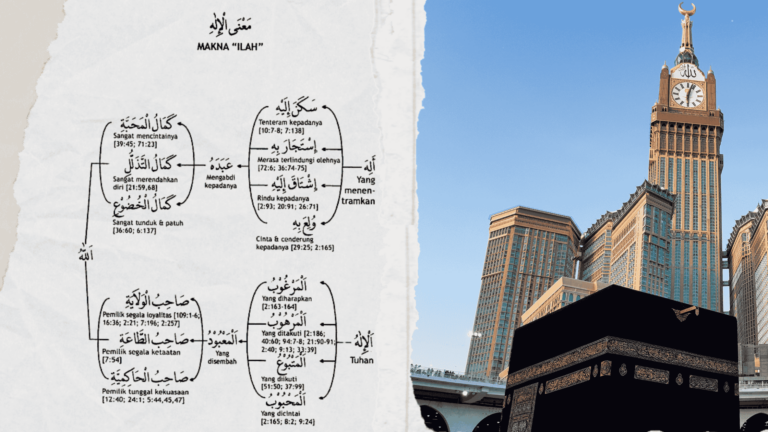 مَعْنَى الْإِلٰهِ
MAKNA "ILAH"
أَلِهَ
Yang
menen-
tramkan
سَكَنَ إِلَيْهِ
Tenteram kepadanya
[10:7-8; 7:138]
إِسْتَجَارَ بِهِ
Merasa terlindungi olehnya
[72:6; 36:74-75]
إِشْتَاقَ إِلَيْهِ
Rindu kepadanya
[2:93; 20:91; 26:71]
وُلِعَ بِهِ
Cinta & cenderung
kepadanya
[29:25; 2:165]
عَبَدَهُ
Mengabdi
kepadanya
كَمَالُ الْمَحَبَّةِ
Sangat mencintainya
[39:45; 71:23]
كَمَالُ التَّذَلُّلِ
Sangat merendahkan
diri [21:59,68]
كَمَالُ الْخُضُوْعِ
Sangat tunduk & patuh
[36:60; 6:137]
اَللهُ
اَلْإِلٰهُ
Tuhan
اَلْمَرْغُوْبُ
Yang diharapkan
[2:163-164]
اَلْمَرْهُوْبُ
Yang ditakuti [2:186;
40:60; 94:7-8; 21:90-91;
2:40; 9:13; 33:39]
اَلْمَتْبُوْعُ
Yang diikuti
[51:50; 37:99]
اَلْمَحْبُوْبُ
Yang dicintai
[2:165; 8:2; 9:24]
اَلْمَعْبُوْدُ
Yang
disembah
صَاحِبُ الْوِلَايَةِ
Pemilik segala loyalitas [109:1-6;
16:36; 2:21; 7:196; 2:257]
صَاحِبُ الطَّاعَةِ
Pemilik segala ketaatan
[7:54]
صَاحِبُ الْحَاكِمِيَّةِ
Pemilik tunggal kekuasaan
[12:40; 24:1; 5:44,45,47]
الله